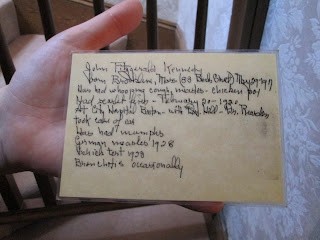 John Fitzgerald Kennedy
Born Brookline, Mass. (83 Beals Street) May 29, 1917
Has had whooping cough, measles - chicken pox
Had scarlet fever - February 20 - 1920
At City Hospital Boston - with Dr. Hill - Dr. Reardon
took care of ear
Has had mumps
German measles 1928
Schick test 1928
Bronchitis occasionally